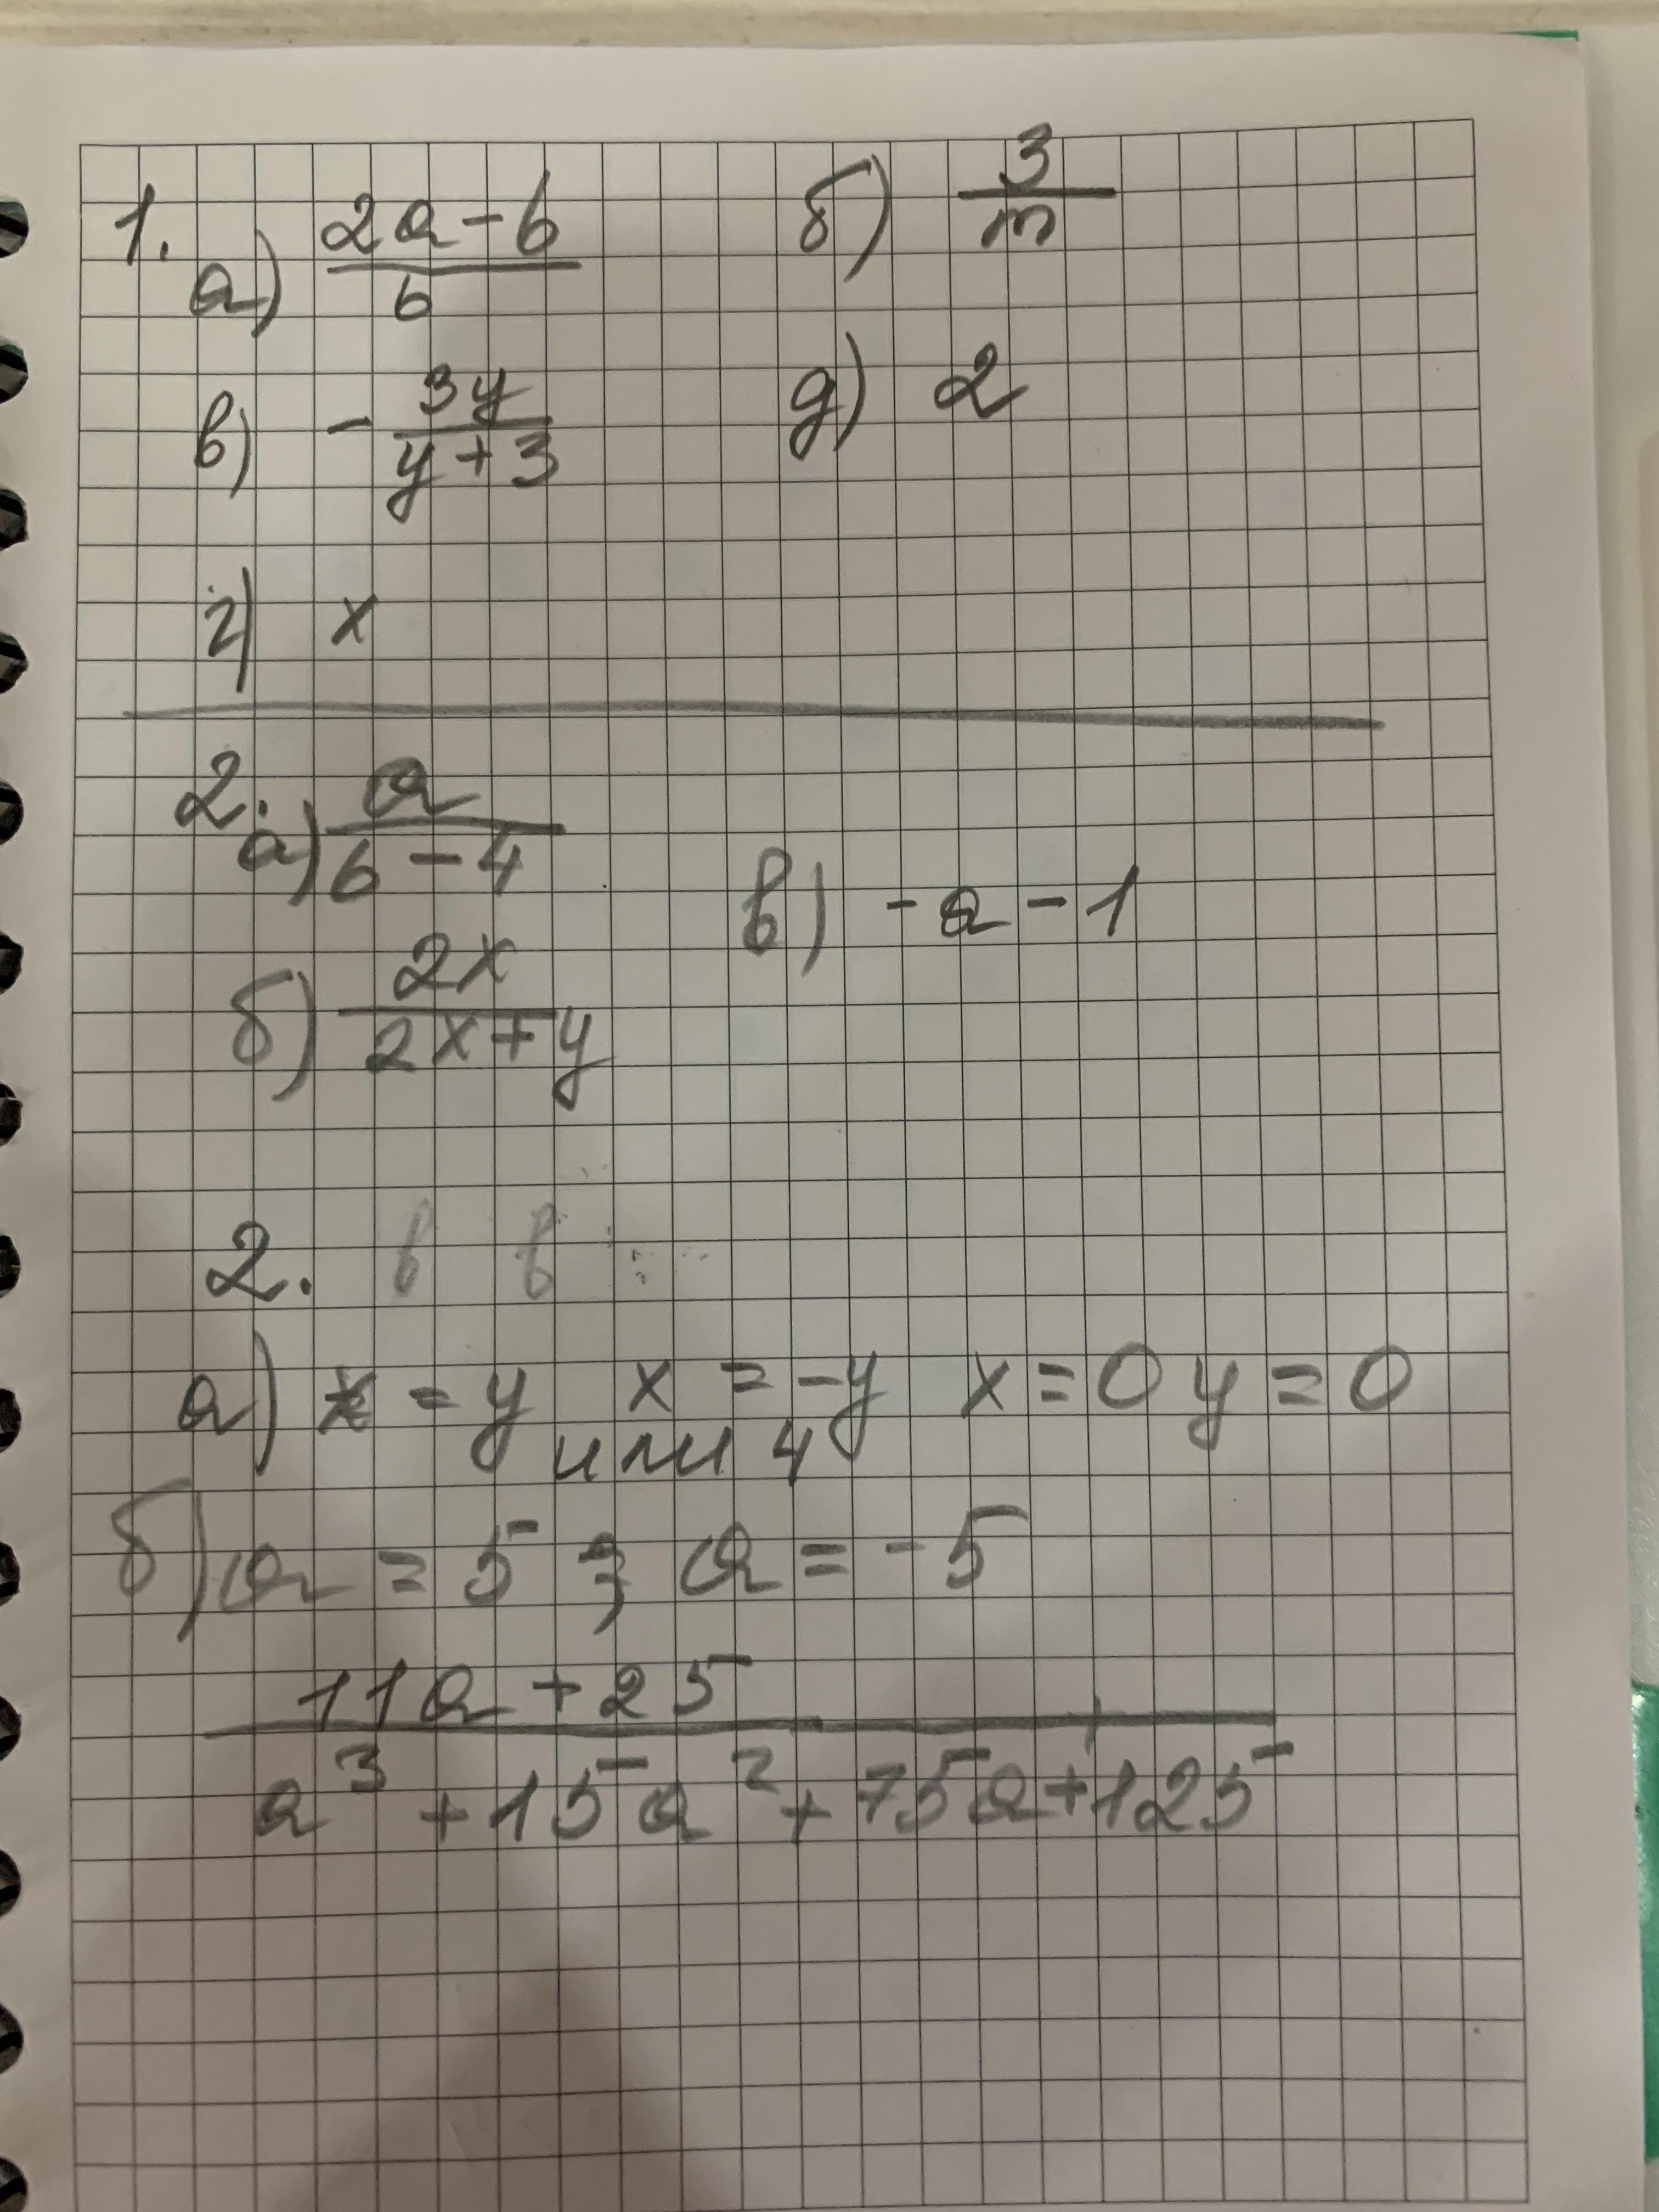 1. а) (2a-b)/b б) 3/m
в) -3y/(y+3) д) 2
г) x
2. а) a/(b-4) в) -a-1
б) 2x/(2x+y)
2. в в
а) x = y x = -y x = 0 y = 0
или
б) a = 5 ; a = -5
(11a+25)/(a³+15a²+75a+125)